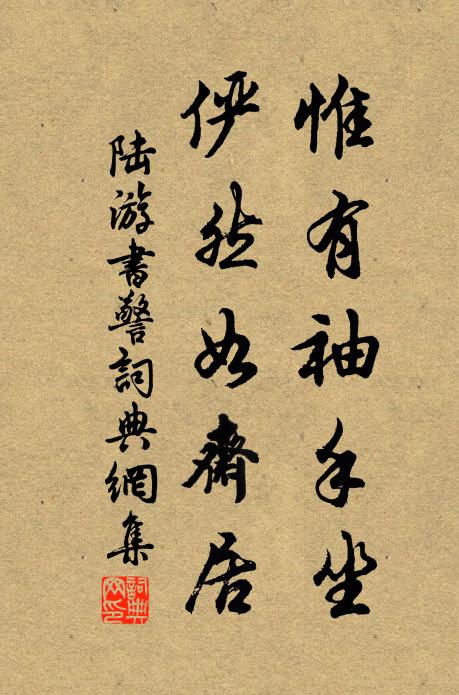 惟有袖手坐
俨然如齋居
陆游書警詞典網集
詞典网印